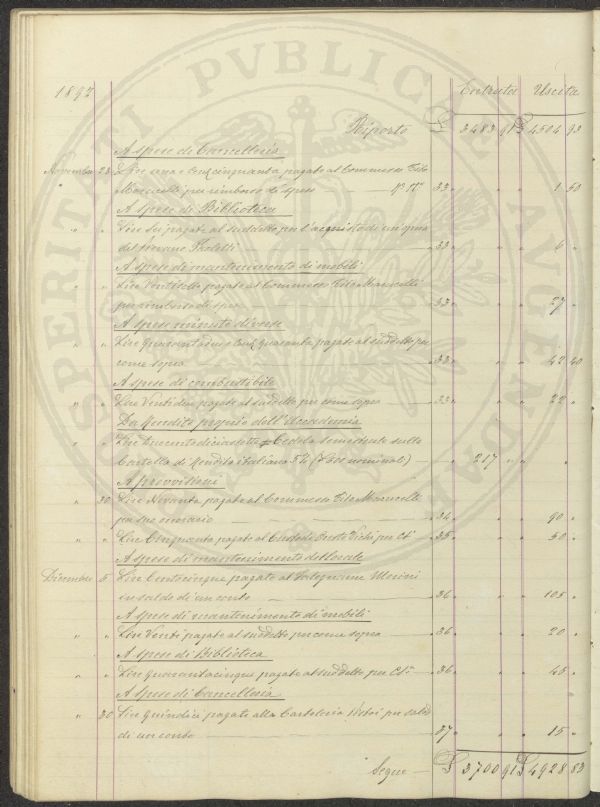 PROSPERITATI PVBLICAE AVGENDAE
1892 Entrata Uscita
Riporto £ 3483 91 £ 4504 93
A spese di Cancelleria
Novembre 28 Lire una e Cent. cinquanta pagate al Commesso Tito
" Marucelli per rimborso di spese — N° 17 33 " " 1 50
A spese di Biblioteca
" " Lire Sei pagate al suddetto per l'acquisto di un'opera
del 33 " " 6 "
A spese di mantenimento di mobili
" " Lire Ventisette pagate al Commesso Tito Marucelli
per rimborso di spese 33 " " 27 "
A spese minute diverse
" " Lire Quarantadue e Cent. quaranta pagate al suddetto per
come sopra 33 " " 42 40
A spese di combustibile
" " Lire Ventidue pagate al suddetto per come sopra 33 " " 22 "
Da Rendita propria dell'Accademia
" " Lire Duecentodiciassette Cedola Semestrale sulla
Cartella di Rendita italiana 5% ( nominali) — " 217 " " "
A provvisioni
" 30 Lire Novanta pagate al Commesso Tito Marucelli
per suo onorario 34 " " 90 "
" " Lire Cinquanta pagate al Custode Oreste per C.S. 35 " " 50 "
A spese di mantenimento del locale
Dicembre 5 Lire Centocinque pagate al Falegname Morini
in saldo di un conto 36 " " 105 "
A spese di mantenimento di mobili
" " Lire Venti pagate al suddetto per come sopra 36 " " 20 "
A spese di Biblioteca
" " Lire Quarantacinque pagate al suddetto per C.S. 36 " " 45 "
A spese di Cancelleria
" 30 Lire Quindici pagate alla Cartoleria per saldo
di un conto 37 " " 15 "
Segue — £ 3700 91 £ 4928 83